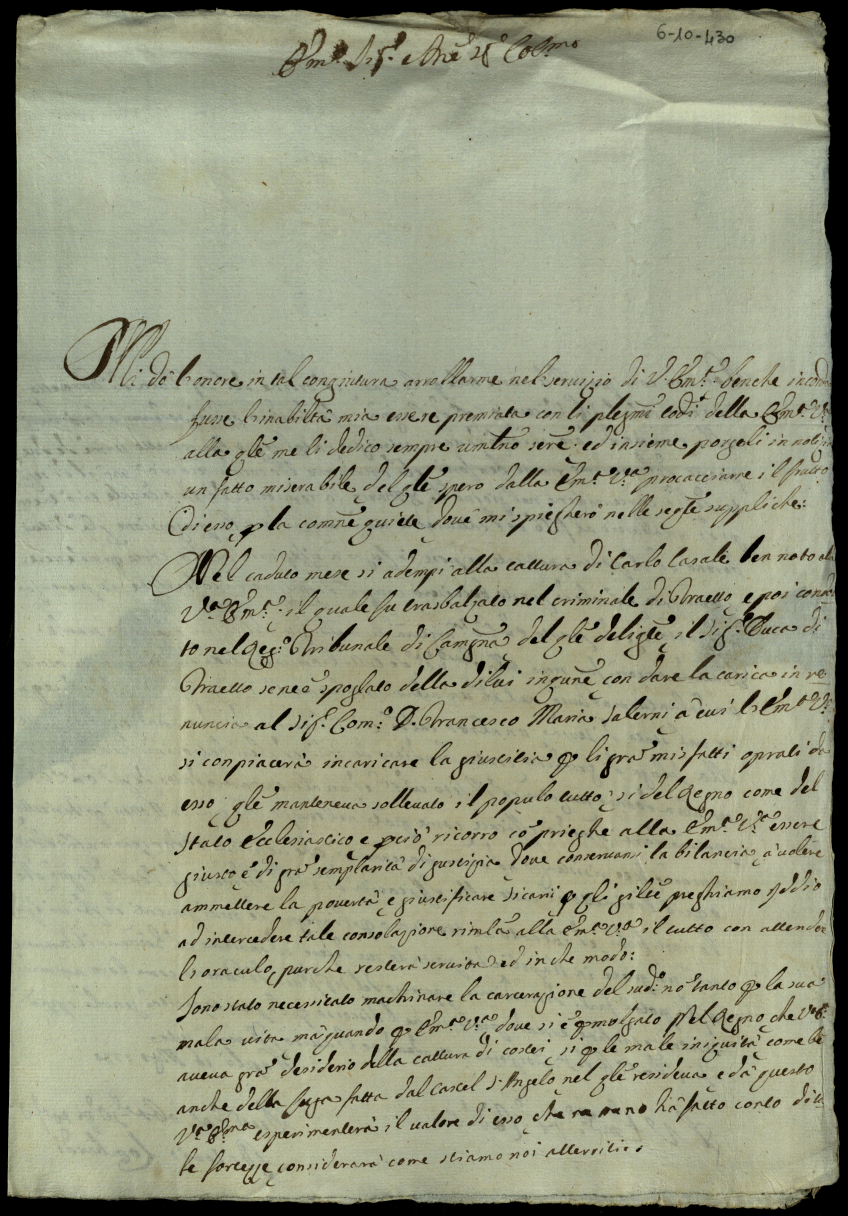 6-10-430
Em.º Sig.r e Pne
Mi dò l'onore in tal congiuntura arrollarme nel servizio di V. Em.a benche
fusse l'inabiltà mia essere premiata con li della Em.a V.a
alla qle me li dedico sempre ed insieme porgeli in notizia
un fatto miserabile del qle spero dalla Em.a V.a procacciarne il frutto
di esso p la comne quiete dove mi spiegherò nelle segte suppliche:
Nel caduto mese si adempì alla cattura di Carlo Casale ben noto
V.a Em.a il quale fu trasbalzato nel criminale di Traetto e poi
to nel Reg.o Tribunale di Campna del qle il Sig.r Duca di
Traetto sene è spogliato della di lui con dare la carica in re
nuncia al Sig.r Com.o D. Francesco Maria Salerni à cui l'Em.a V.a
si conpiacerà incaricare la giustitia p li gra misfatti oprati da
esso, qle manteneva sollevato il populo tutto, si del Regno come del
Stato Ecclesiastico e pciò ricorro cō prieghe alla Em.a V.a essere
giusto è di gra semplarità di giustizia dove conservansi la bilancia à volere
ammettere la povertà e giustificare sicarii p qli preghiamo Iddio
ad intercedere tale consolazione alla Em.a V.a il tutto con attendere
l'oraculo, purche resterà servita ed in che modo:
Sono stato necessitato machinare la carcerazione del sud.o nō tanto p la sua
mala vita mà quando p Em.a V.a dove si è pmolgato pel Regno che V.a E.
aveva gra desiderio della cattura di costei, si p le male iniquità come
anche della fuga fatta dal Castel S. Angelo nel qle resideva e dà questo
V.a Em.a esperimenterà il valore di esso che hà fatto conto di
le fortezze considerarà come stiamo noi atterriti.